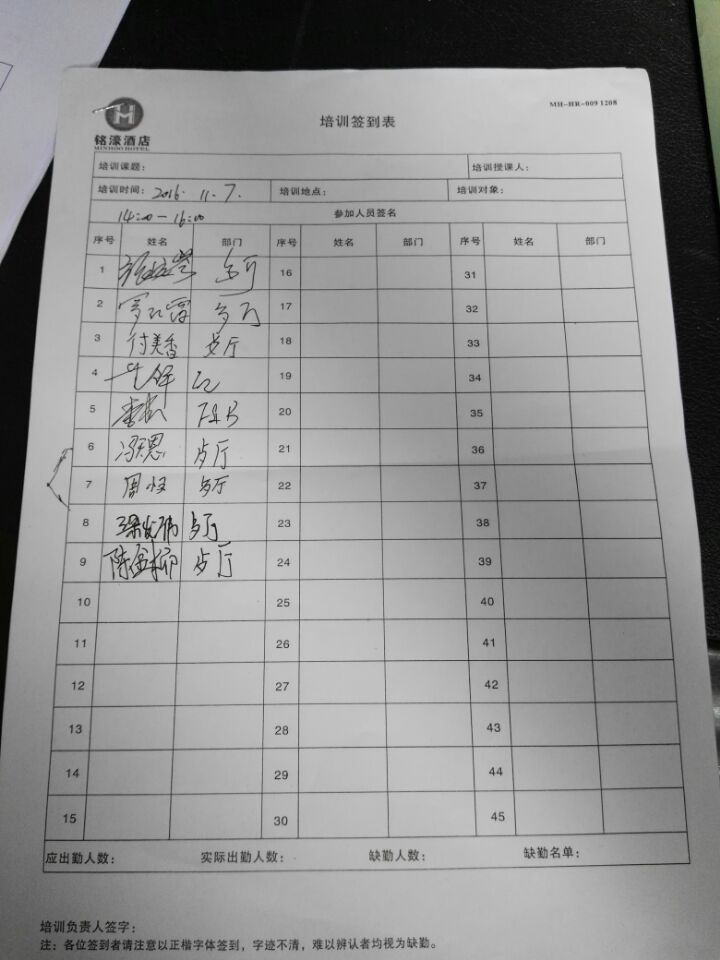 MH-HR-009 1208
铭濠酒店
MINHOO HOTEL
培训签到表
培训课题： 培训授课人：
培训时间：2016. 11. 7. 培训地点： 培训对象：
14:00—16:00 参加人员签名
序号 姓名 部门 序号 姓名 部门 序号 姓名 部门
1 16 31
2 17 32
3 付美香 18 33
4 19 34
5 20 35
6 冯天恩 21 36
7 周 22 37
8 23 38
9 陈 24 39
10 25 40
11 26 41
12 27 42
13 28 43
14 29 44
15 30 45
应出勤人数： 实际出勤人数： 缺勤人数： 缺勤名单：
培训负责人签字：
注：各位签到者请注意以正楷字体签到，字迹不清，难以辨认者均视为缺勤。